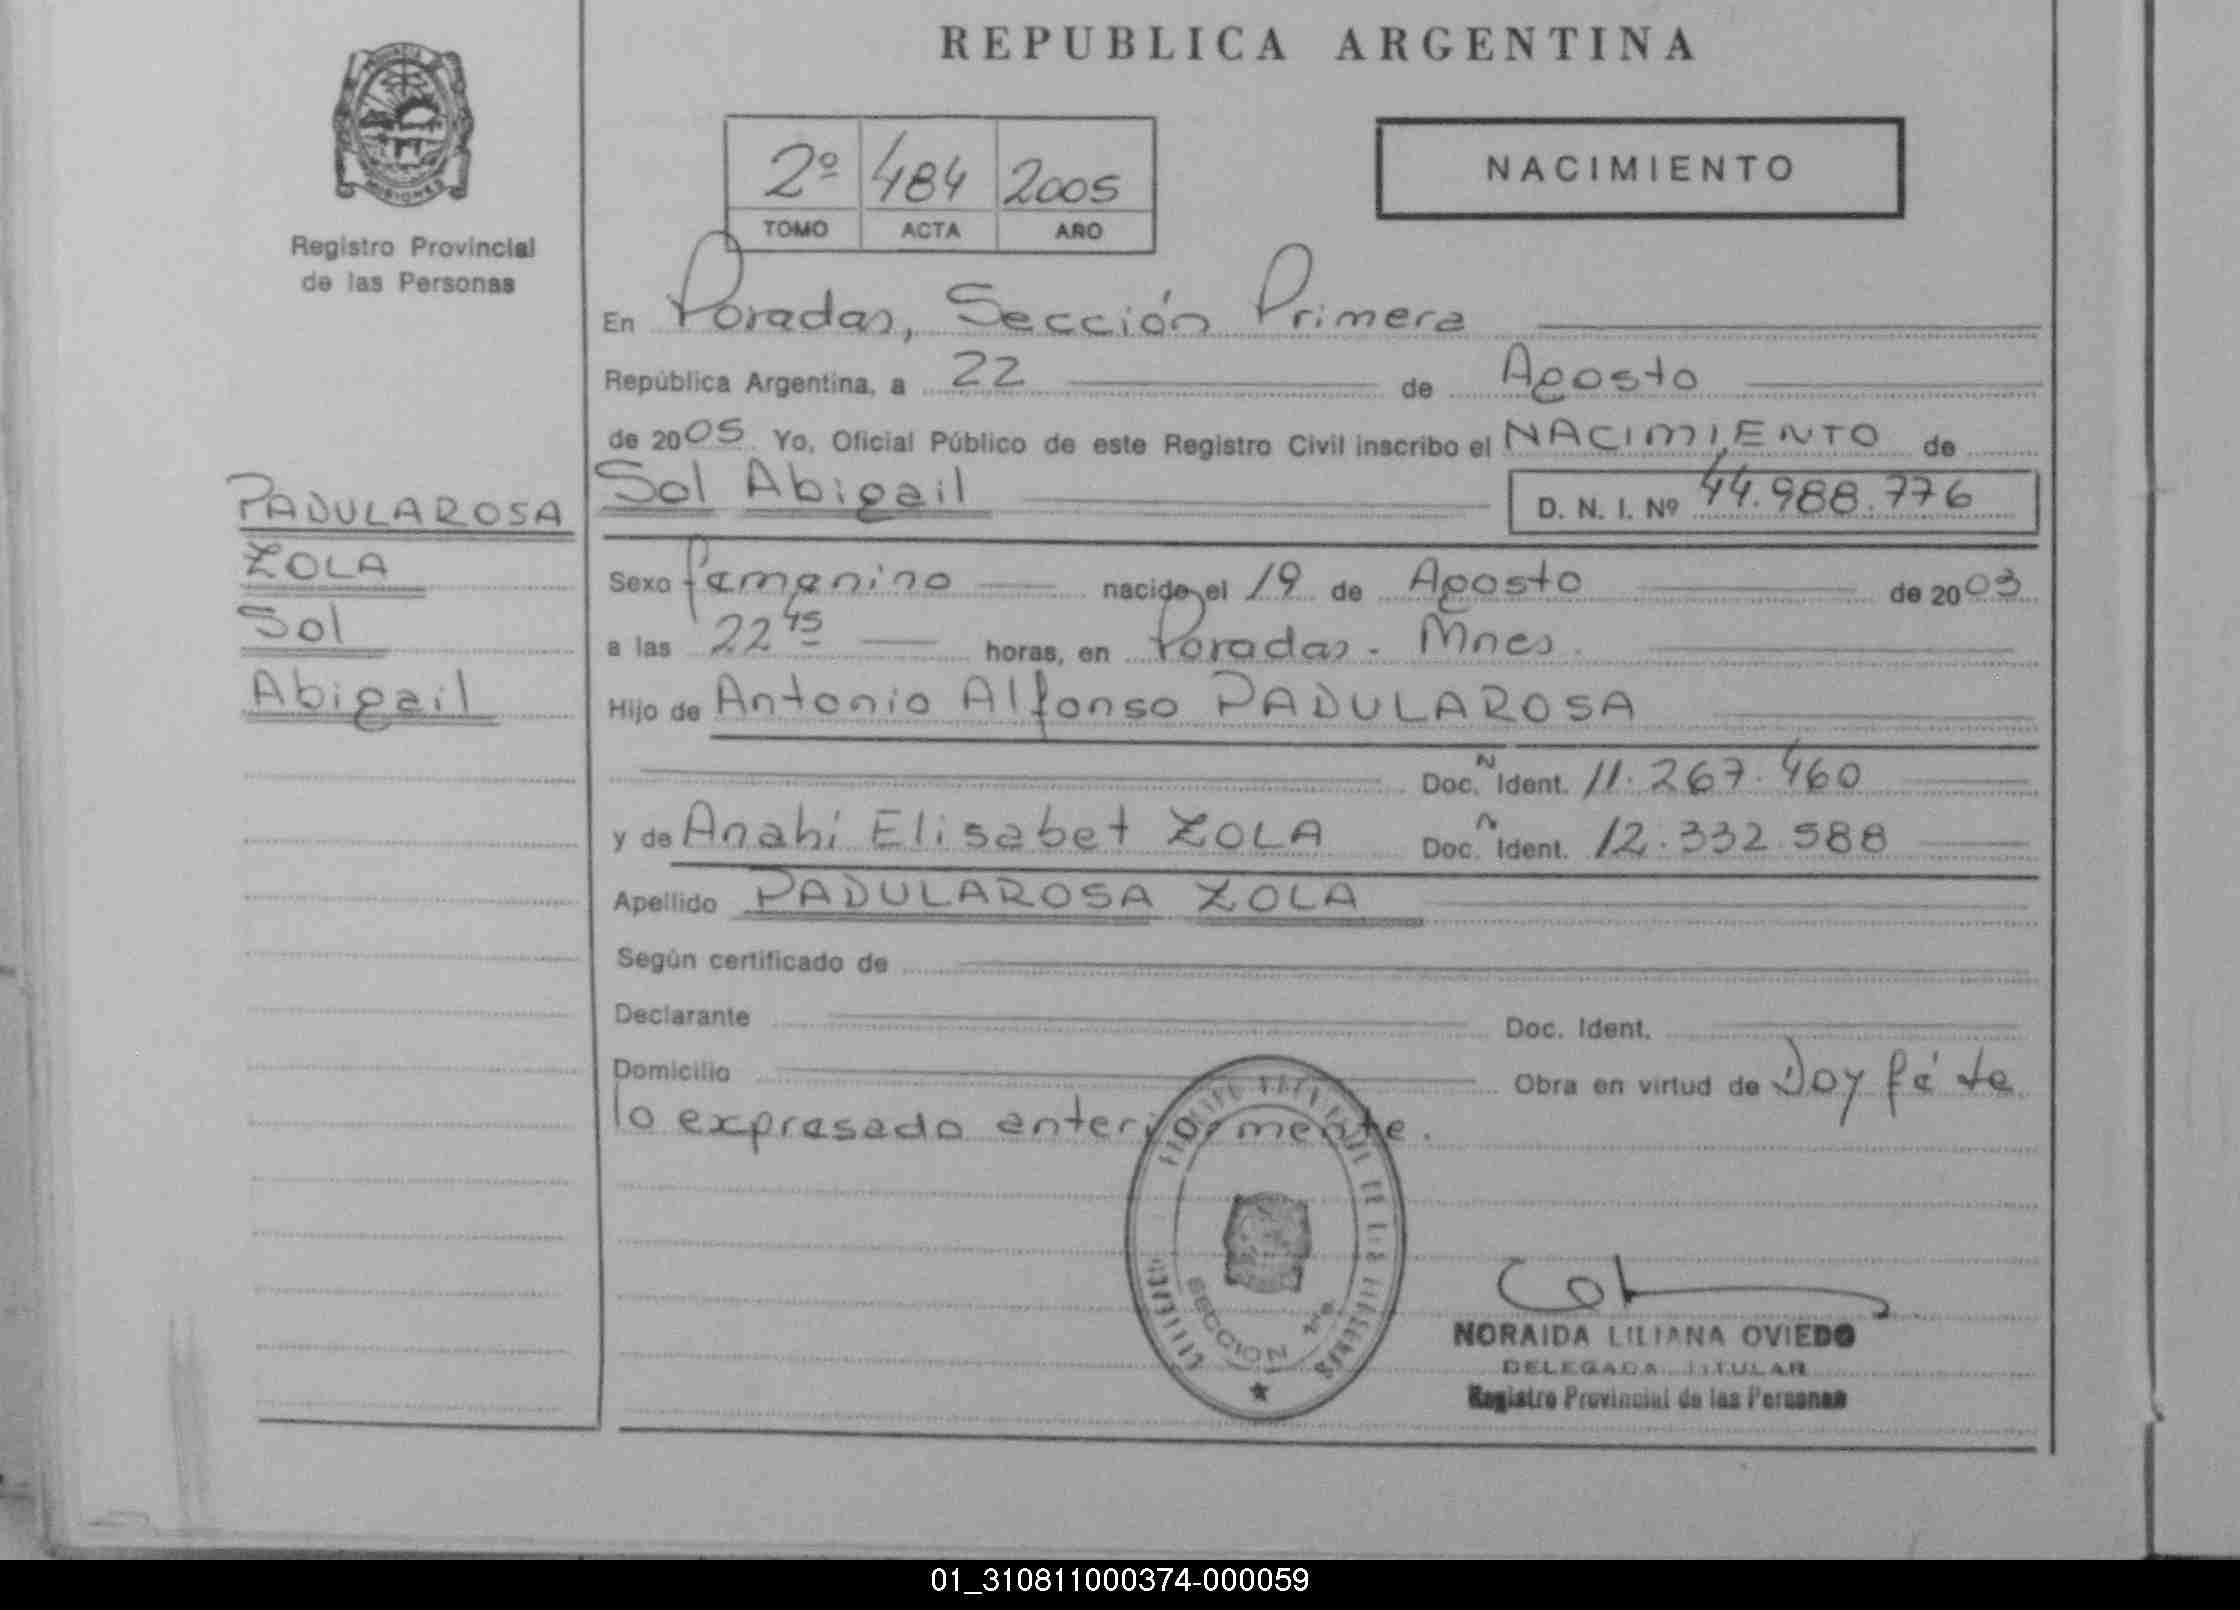 REPUBLICA ARGENTINA
PROVINCIA
MISIONES
Registro Provincial
de las Personas
2º 484 2005
TOMO ACTA AÑO
NACIMIENTO
En Posadas, Sección Primera
República Argentina, a 22 de Agosto
de 2005 Yo, Oficial Público de este Registro Civil inscribo el NACIMIENTO de
Sol Abigail D. N. I. Nº 44.988.776
PADULAROSA
ZOLA
Sol
Abigail
Sexo femenino nacido el 19 de Agosto de 2003
a las 22 45 horas, en Posadas - Mnes.
Hijo de Antonio Alfonso PADULAROSA
Doc. N Ident. 11.267.460
y de Anahi Elisabet ZOLA Doc. N Ident. 12.332.588
Apellido PADULAROSA ZOLA
Según certificado de
Declarante Doc. Ident.
Domicilio Obra en virtud de Doy fé de
lo expresado anteriormente.
SECCION 1ra
NORAIDA LILIANA OVIEDO
DELEGADA TITULAR
Registro Provincial de las Personas
01_310811000374-000059